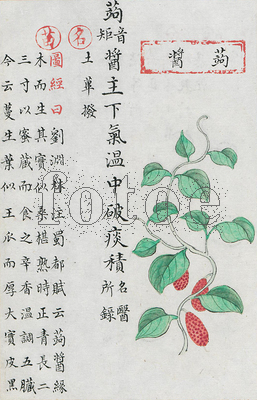 蒟醬
蒟音矩醬主下氣溫中破痰積名醫所錄
名土蓽撥
苗圖經曰劉淵林注蜀都賦云蒟醬緣
木而生其實似桑椹熟時正青長二
三寸以蜜藏而食之辛香溫調五臟
今云蔓生葉似王瓜而厚大實皮黑
fotoe